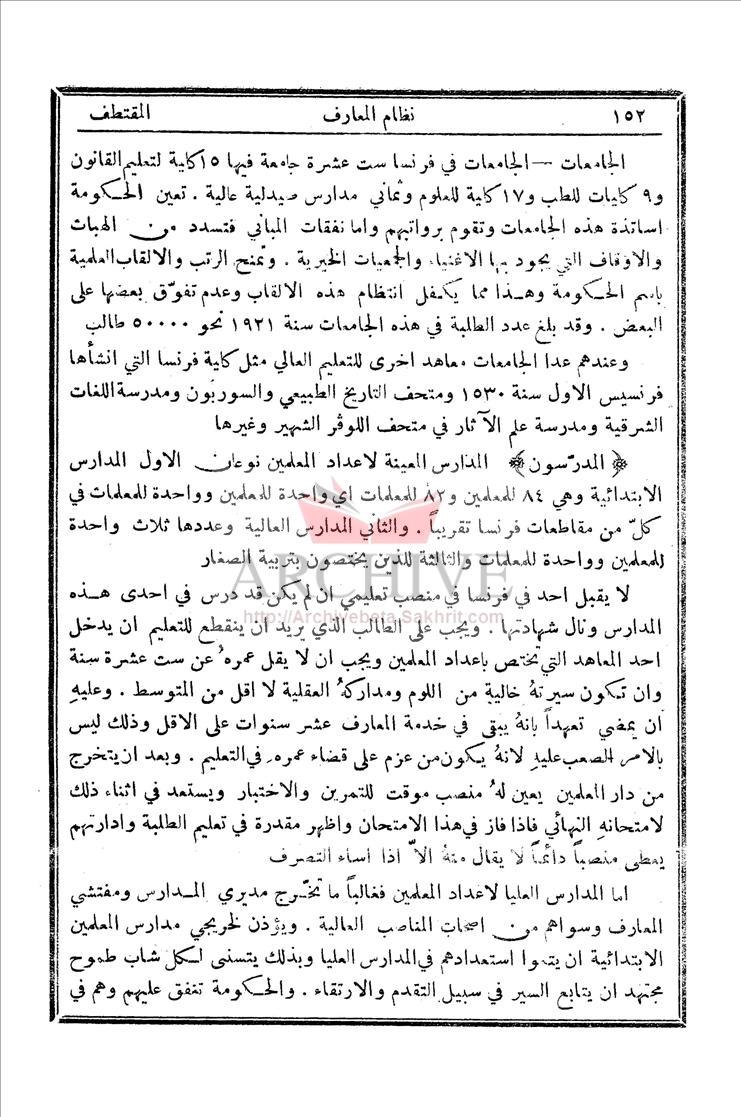 ١٥٢ نظام المعارف المقتطف
الجامعات — الجامعات في فرنسا ست عشرة جامعة فيها ١٥ كلية لتعليم القانون
و٩ كليات للطب و١٧ كلية للعلوم وثماني مدارس صيدلية عالية . تعين الحكومة
اساتذة هذه الجامعات وتقوم برواتبهم واما نفقات المباني فتسدد من الهبات
والاوقاف التي يجود بها الاغنياء والجمعيات الخيرية . وتمنح الرتب والالقاب العلمية
باسم الحكومة وهذا مما يكفل انتظام هذه الالقاب وعدم تفوّق بعضها على
البعض . وقد بلغ عدد الطلبة في هذه الجامعات سنة ١٩٢١ نحو ٥٠٠٠٠ طالب
وعندهم عدا الجامعات معاهد اخرى للتعليم العالي مثل كلية فرنسا التي انشأها
فرنسيس الاول سنة ١٥٣٠ ومتحف التاريخ الطبيعي والسوربون ومدرسة اللغات
الشرقية ومدرسة علم الآثار في متحف اللوڤر الشهير وغيرها
﴿ المدرّسون ﴾ المدارس المعينة لاعداد المعلمين نوعان الاول المدارس
الابتدائية وهي ٨٤ للمعلمين و٨٢ للمعلمات اي واحدة للمعلمين وواحدة للمعلمات في
كلّ من مقاطعات فرنسا تقريباً . والثاني المدارس العالية وعددها ثلاث واحدة
للمعلمين وواحدة للمعلمات والثالثة للذين يختصون بتربية الصغار
لا يقبل احد في فرنسا في منصب تعليمي ان لم يكن قد درس في احدى هذه
المدارس ونال شهادتها . ويجب على الطالب الذي يريد ان ينقطع للتعليم ان يدخل
احد المعاهد التي تختص باعداد المعلمين ويجب ان لا يقل عمرهُ عن ست عشرة سنة
وان تكون سيرتهُ خالية من اللوم ومداركهُ العقلية لا اقل من المتوسط . وعليهِ
ان يمضي تعهداً بانهُ يبقى في خدمة المعارف عشر سنوات على الاقل وذلك ليس
بالامر الصعب عليهِ لانهُ يكون من عزم على قضاء عمرهِ في التعليم . وبعد ان يتخرج
من دار المعلمين يعين لهُ منصب موقت للتمرين والاختبار ويستعد في اثناء ذلك
لامتحانهِ النهائي فاذا فاز في هذا الامتحان واظهر مقدرة في تعليم الطلبة وادارتهم
يعطى منصباً دائماً لا يقال منهُ الاّ اذا اساء التصرف
اما المدارس العليا لاعداد المعلمين فغالباً ما تخّرج مديري المدارس ومفتشي
المعارف وسواهم من اصحاب المناصب العالية . ويؤذن لخريجي مدارس المعلمين
الابتدائية ان يتموا استعدادهم في المدارس العليا وبذلك يتسنى لكل شاب طموح
مجتهد ان يتابع السير في سبيل التقدم والارتقاء . والحكومة تنفق عليهم وهم في
ARCHIVE
http://Archivebeta.Sakhrit.com